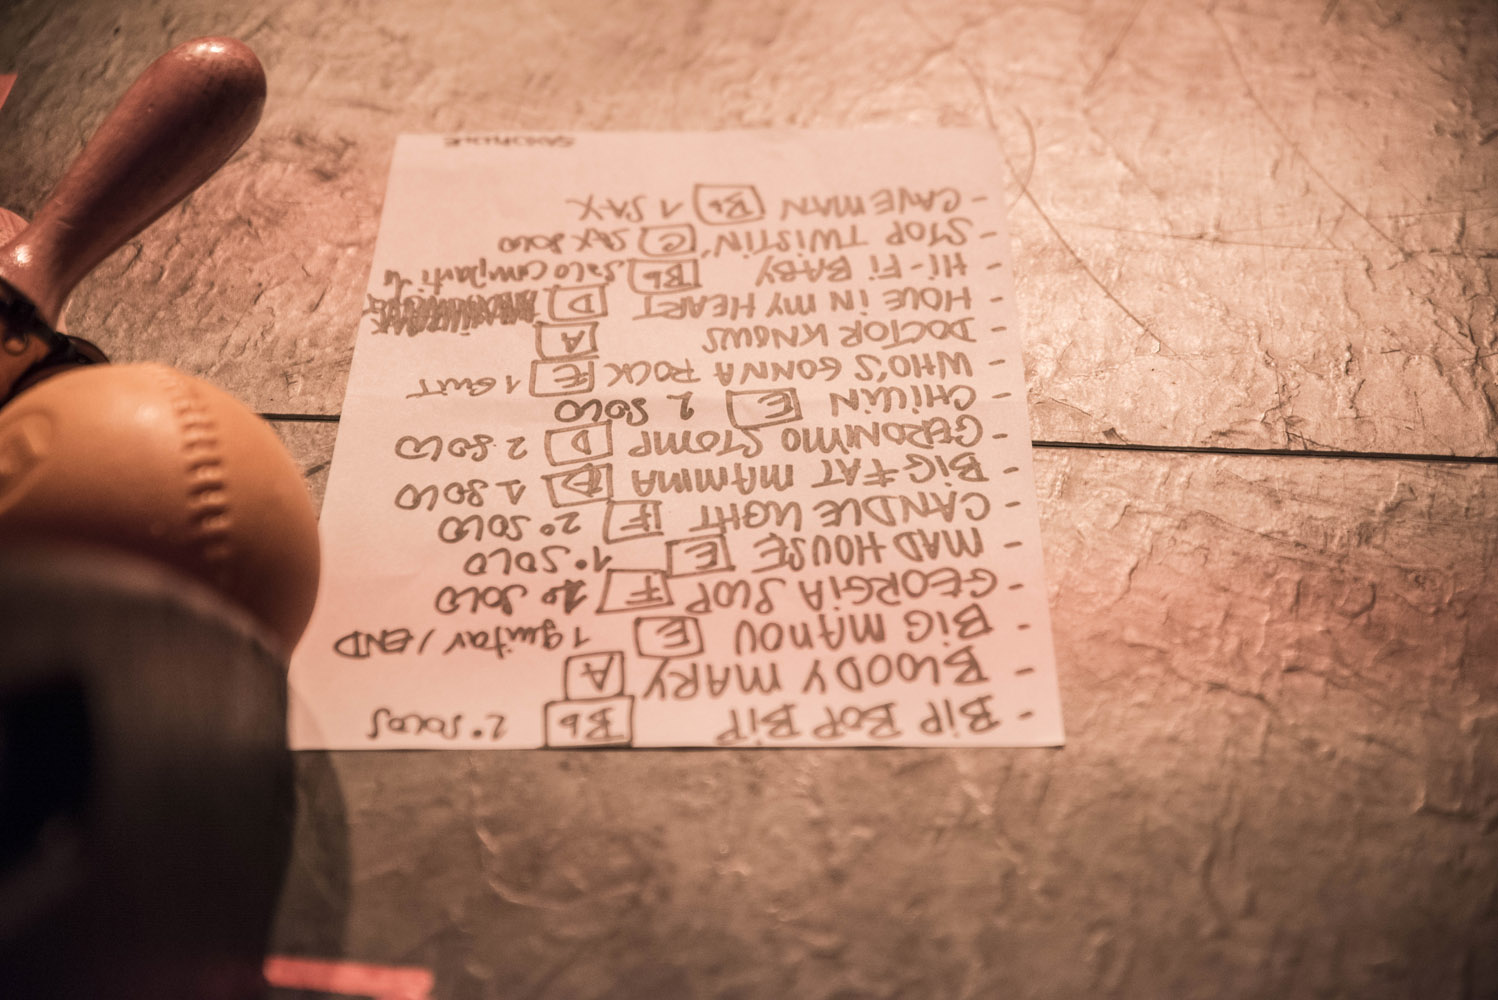 - BIP BOP BIP [Bb] 2° SOLOS
- BLOODY MARY [A]
- BIG MANOU [E] 1 guitar / END
- GEORGIA SLOP [F] 1° SOLO
- MAD HOUSE [E] 1° SOLO
- CANDLE LIGHT [F] 2° SOLO
- BIG FAT MAMMA [D] 1 SOLO
- GERONIMO STOMP [D] 2 SOLO
- CHILLIN [E] 2 SOLO
- WHO'S GONNA ROCK [E] 1 GUIT
- DOCTOR KNOWS [A]
- HOLE IN MY HEART [D]
- HI-FI BABY [Bb] Solo
- STOP TWISTIN' [C] SAX SOLO
- CAVE MAN [Bb] 1 SAX